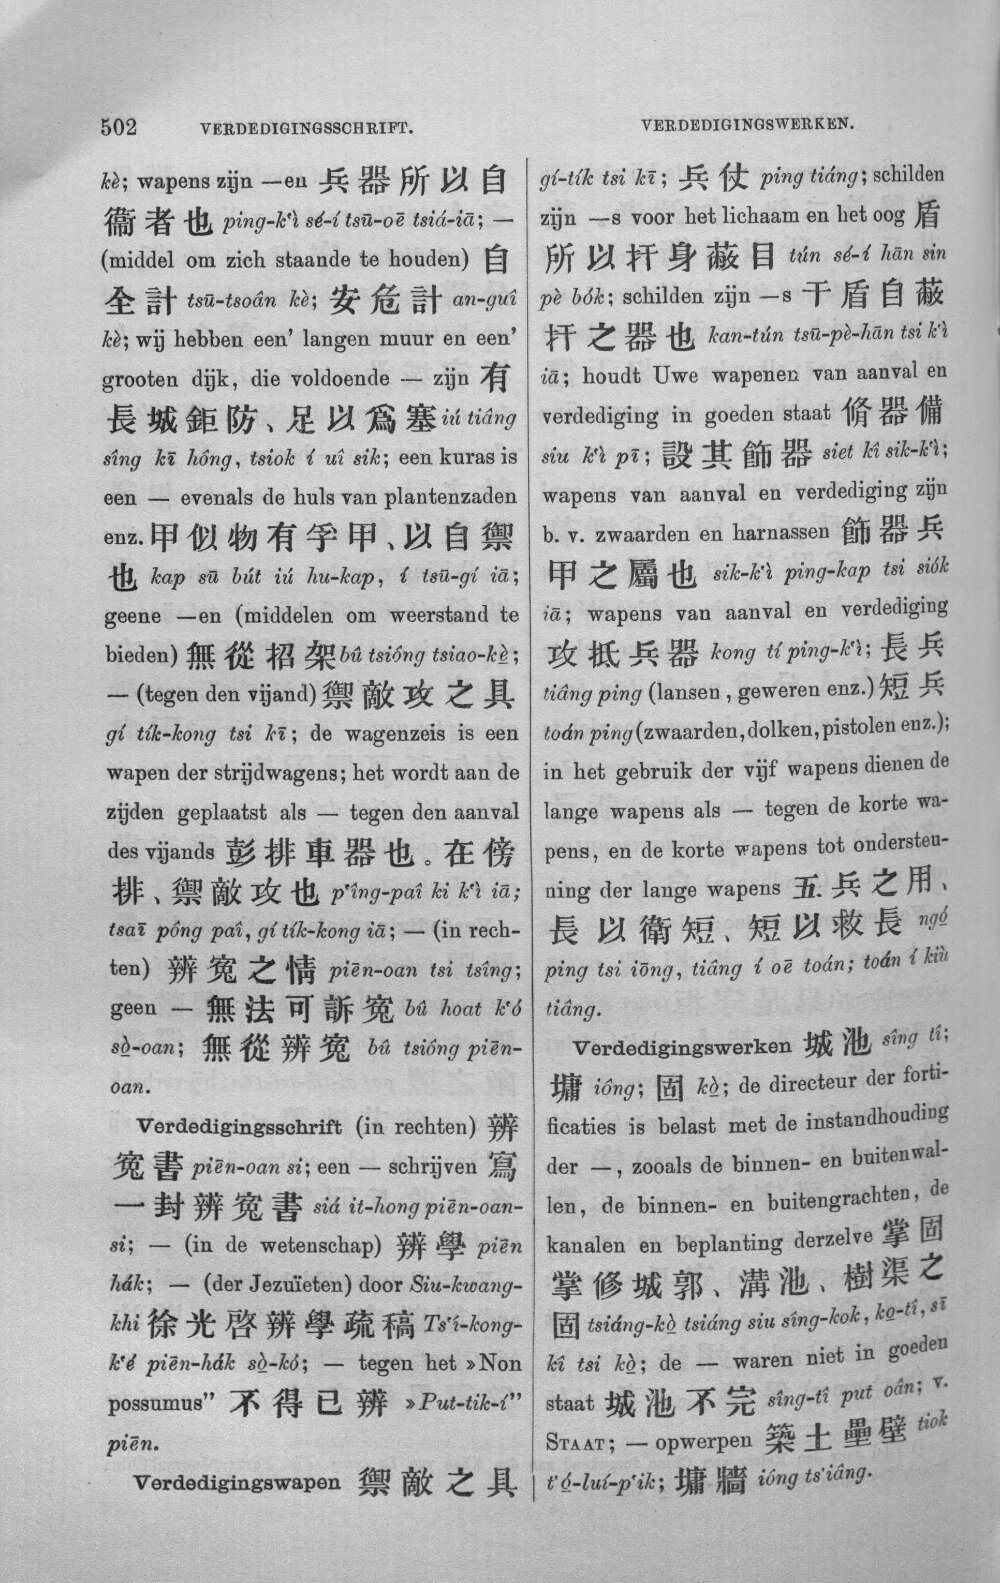 502 VERDEDIGINGSSCHRIFT.
VERDEDIGINGSWERKEN.
kè; wapens zijn —en 兵器所以自
衞者也 ping-k‘ì sé-í tsū-oē tsiá-iā; —
(middel om zich staande te houden) 自
全計 tsū-tsoân kè; 安危計 an-guî
kè; wij hebben een’ langen muur en een’
grooten dijk, die voldoende — zijn 有
長城鉅防、足以爲塞 iú tiâng
sîng kī hông, tsiok í uî sik; een kuras is
een — evenals de huls van plantenzaden
enz. 甲似物有孚甲、以自禦
也 kap sū bút iú hu-kap, í tsū-gí iā;
geene —en (middelen om weerstand te
bieden) 無從招架 bû tsióng tsiao-kè̱;
— (tegen den vijand) 禦敵攻之具
gí tík-kong tsi kī; de wagenzeis is een
wapen der strijdwagens; het wordt aan de
zijden geplaatst als — tegen den aanval
des vijands 彭排車器也。在傍
排、禦敵攻也 p‘îng-paî ki k‘ì iā;
tsaī pông paî, gí tík-kong iā; — (in rech-
ten) 辨寃之情 piēn-oan tsi tsîng;
geen — 無法可訴寃 bû hoat k‘ó
sò̱-oan; 無從辨寃 bû tsióng piēn-
oan.
Verdedigingsschrift (in rechten) 辨
寃書 piēn-oan si; een — schrijven 寫
一封辨寃書 siá it-hong piēn-oan-
si; — (in de wetenschap) 辨學 piēn
hák; — (der Jezuïeten) door Siu-kwang-
khi 徐光啓辨學疏稿 Ts‘í-kong-
k‘é piēn-hák sò̱-kó; — tegen het »Non
possumus” 不得已辨 »Put-tik-í”
piēn.
Verdedigingswapen 禦敵之具
gí-tík tsi kī; 兵仗 ping tiáng; schilden
zijn —s voor het lichaam en het oog 盾
所以扞身蔽目 tún sé-í hān sin
pè bók; schilden zijn —s 干盾自蔽
扞之器也 kan-tún tsū-pè-hān tsi k‘ì
iā; houdt Uwe wapenen van aanval en
verdediging in goeden staat 脩器備
siu k‘ì pī; 設其飾器 siet kî sik-k‘ì;
wapens van aanval en verdediging zijn
b. v. zwaarden en harnassen 飾器兵
甲之屬也 sik-k‘ì ping-kap tsi siók
iā; wapens van aanval en verdediging
攻抵兵器 kong tí ping-k‘ì; 長兵
tiâng ping (lansen, geweren enz.) 短兵
toán ping (zwaarden, dolken, pistolen enz.);
in het gebruik der vijf wapens dienen de
lange wapens als — tegen de korte wa-
pens, en de korte wapens tot ondersteu-
ning der lange wapens 五兵之用、
長以衛短、短以救長 ngó̱
ping tsi iōng, tiâng í oē toán; toán í kiù
tiâng.
Verdedigingswerken 城池 sîng tî;
墉 iông; 固 kò̱; de directeur der forti-
ficaties is belast met de instandhouding
der —, zooals de binnen- en buitenwal-
len, de binnen- en buitengrachten, de
kanalen en beplanting derzelve 掌固
掌修城郭、溝池、樹渠之
固 tsiáng-kò̱ tsiáng siu sîng-kok, ko̱-tî, sī
kî tsi kò̱; de — waren niet in goeden
staat 城池不完 sîng-tî put oân; v.
STAAT; — opwerpen 築土壘壁 tiok
t‘ó̱-luí-p‘ik; 墉牆 iông ts‘iâng.